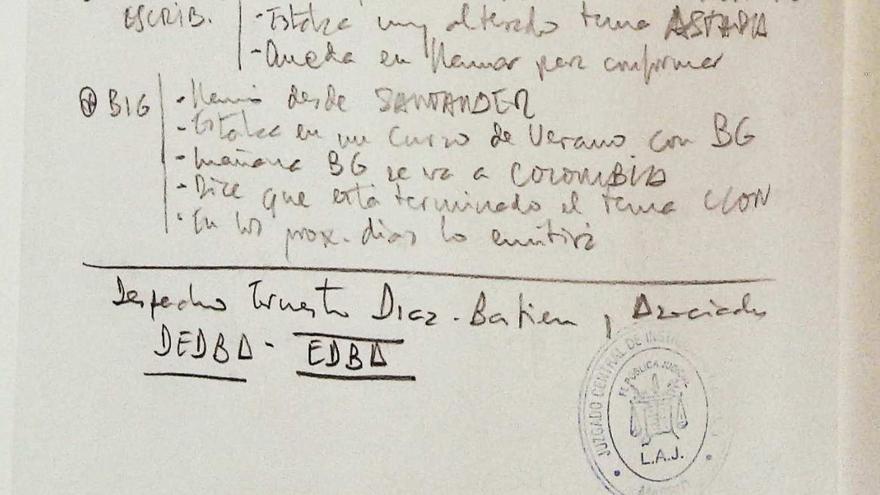 ESCRIB. - Estaba muy alterado tema ASTAPA
- Queda en llamar para confirmar
BIG - Llamó desde SANTANDER
- Estaba en un Curso de Verano con BG
- Mañana BG se va a COLOMBIA
- Dice que está terminado el tema CLON
- En los prox. dias lo emitirá
Despacho Ernesto Diaz-Bastien y Asociados
DEDBA - EDBA
JUZGADO CENTRAL DE
FE PÚBLICA JUDICIAL
L.A.J.